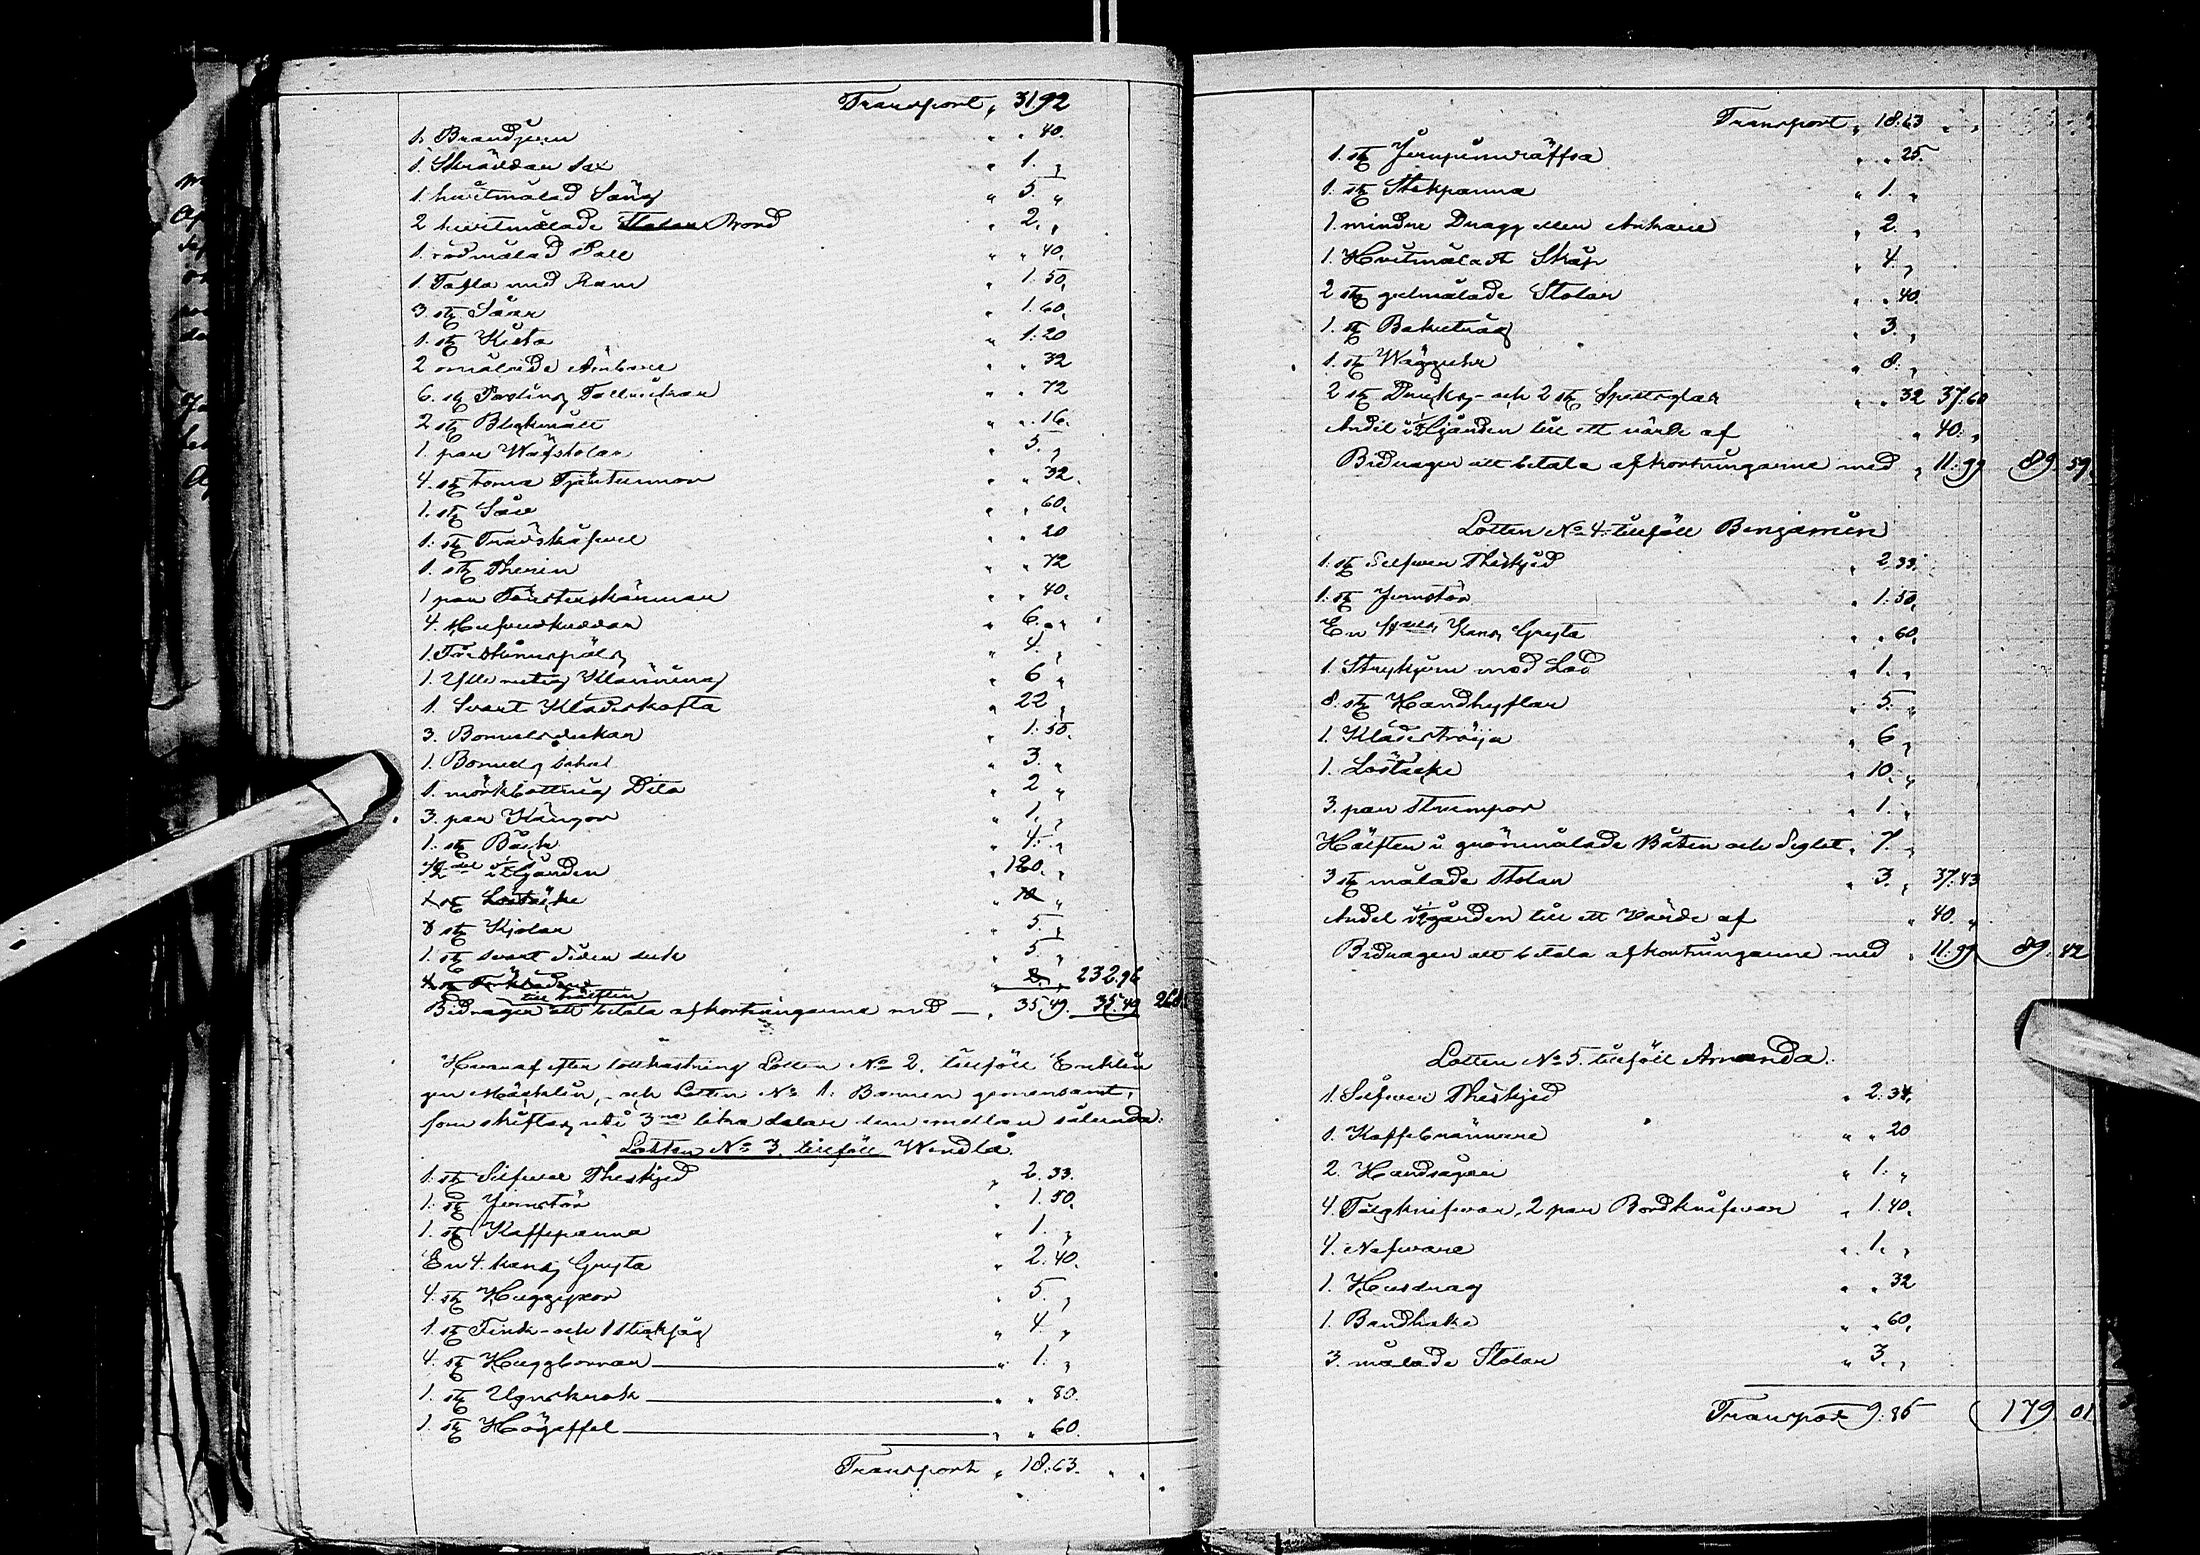 Transport „ 31,92
1. Brandjern „ „ 40.
1. Skräddar sax „ 1. „
1 hvitmålad Säng „ 5. „
2 hvitmålade Bord „ 2. „
1. rödmålad Pall „ „ 40.
1. Tafla med Ram „ 1.50.
3. stg Såar „ 1.60.
1. stg Kista „ 1.20
2 omålade Ämbare „ „ 32
6. stg Postling Tallrickar „ „ 72
2 stg Bleckmått „ „ 16.
1. par Wäfstolar „ 5. „
4. stg toma Tjärtunnor „ „ 32.
1. stg Såll „ „ 60.
1. stg „ „ 20
1. stg Therin „ „ 72
1 par Fönsterskärmar „ „ 40.
4. Hufvudkuddar „ 6. „
1. Fårskinnspäls „ 4. „
1. Ylle rutig Klädning „ 6 „
1. Svart Klädeskofta „ 22 „
3. Bomulsdukar „ 1.50.
1. Bomulls schal „ 3. „
1. mörkbottnig Dito „ 2 „
3. par Kängor „ 1. „
1. stg Bänk „ 4. „
1/2 del i gården „ 120. „
1 stg Lösttäcke „ 10 „
8 stg Kjolar „ 5. „
1. stg svart Siden duk „ 5. „
4 stg Förkläden „ 8. „ 232.96
till hälften
Bidrager att betala afkortningarna med — „ 35.49. 35.49 268.
Häraf efter lottkastning Lotten No 2. tillföll Enklin
gen och Lotten No 1. Barnen gemensamt,
som skiftas uti 3ne lika delar dem emellan sålunda:
Lotten No 3. tillföll Wendla
1. stg Silfver Theskjed „ 2.33.
1. stg Jernstör „ 1.50.
1. stg Kaffepanna „ 1. „
En 4. kans Gryta „ 2.40.
4. stg Huggyxor „ 5. „
1. stg Fink- och 1 sticksåg „ 4. „
4. stg Huggborrar „ 1. „
1. stg Ugnskrok „ „ 80.
1. stg Högaffel „ „ 60.
Transport „ 18.63. „ „
Transport „ 18.63 „ „
1. stg Jernpinnräffsa „ „ 25.
1. stg Stekpanna „ 1. „
1 mindre Dragg eller Ankare „ 2. „
1. Hvitmåladt Skåp „ 4. „
2 stg gulmålade Stolar „ „ 40.
1. stg Baktråg „ 3. „
1. stg Wägguhr „ 8. „
2 stg Dricks- och 2 stg Spetsglas „ „ 32 37.60
Andel i 1/2 gården till ett värde af „ 40. „
Bidrager att betala afkortningarne med „ 11.99 89 59.
Lotten No 4. tillföll Benjamin
1. stg Silfver Theskjed „ 2.33.
1. stg Jernstör „ 1.50.
En Kans Gryta „ „ 60.
1. Strykjern med Lod „ 1. „
8. stg Handhyflar „ 5. „
1. Klädeströja „ 6 „
1. Lösttäcke „ 10. „
3. par Strumpor „ 1. „
Hälften i grönmålade Båten och Seglet „ 7. „
3 stg målade Stolar „ 3. „ 37.43
Andel i 1/2 gården till ett Värde af „ 40. „
Bidrager att betala afkortningarne med „ 11.99 89. 42
Lotten No 5. tillföll Amanda.
1. Silfver Theskjed „ 2.34.
1. Kaffebrännare „ „ 20
2. Handsågar „ 1. „
4. Täljknifvar, 2 par Bordknifvar „ 1.40.
4. Nafvare „ 1. „
1. Husdrag „ „ 32
1. Bandhake „ „ 60.
3. målade Stolar „ 3. „
Transport 9.86 179. 01